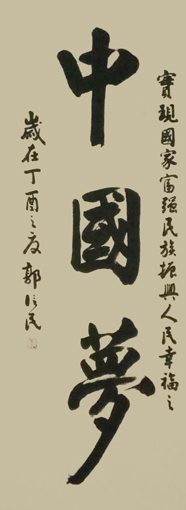 實現國家富强民族振興人民幸福之
中國夢
歲在丁酉之夏郭信民